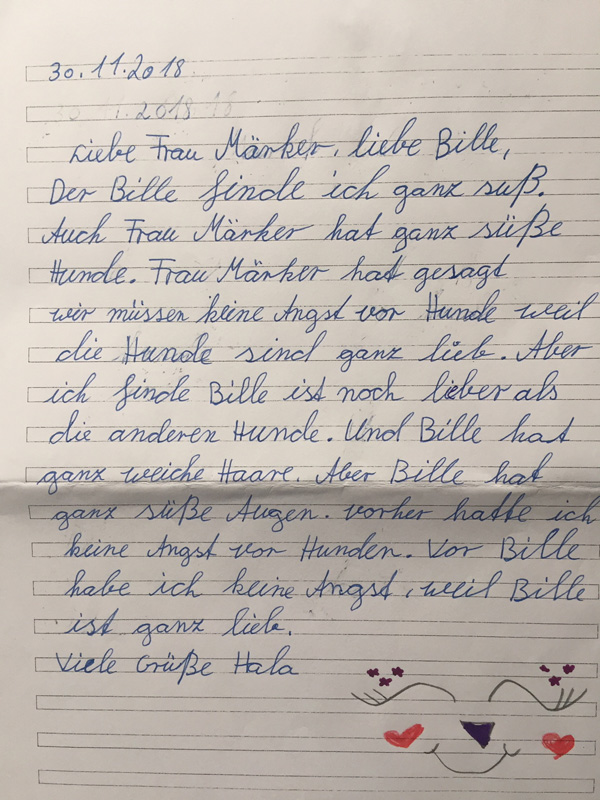 30.11.2018
Liebe Frau Märker, liebe Bille,
Der Bille finde ich ganz suß.
Auch Frau Märker hat ganz süße
Hunde. Frau Märker hat gesagt
wir müssen keine Angst vor Hunde weil
die Hunde sind ganz lieb. Aber
ich finde Bille ist noch lieber als
die anderen Hunde. Und Bille hat
ganz weiche Haare. Aber Bille hat
ganz süße Augen. vorher hatte ich
keine Angst vor Hunden. Vor Bille
habe ich keine Angst, weil Bille
ist ganz lieb.
Viele Grüße Hala